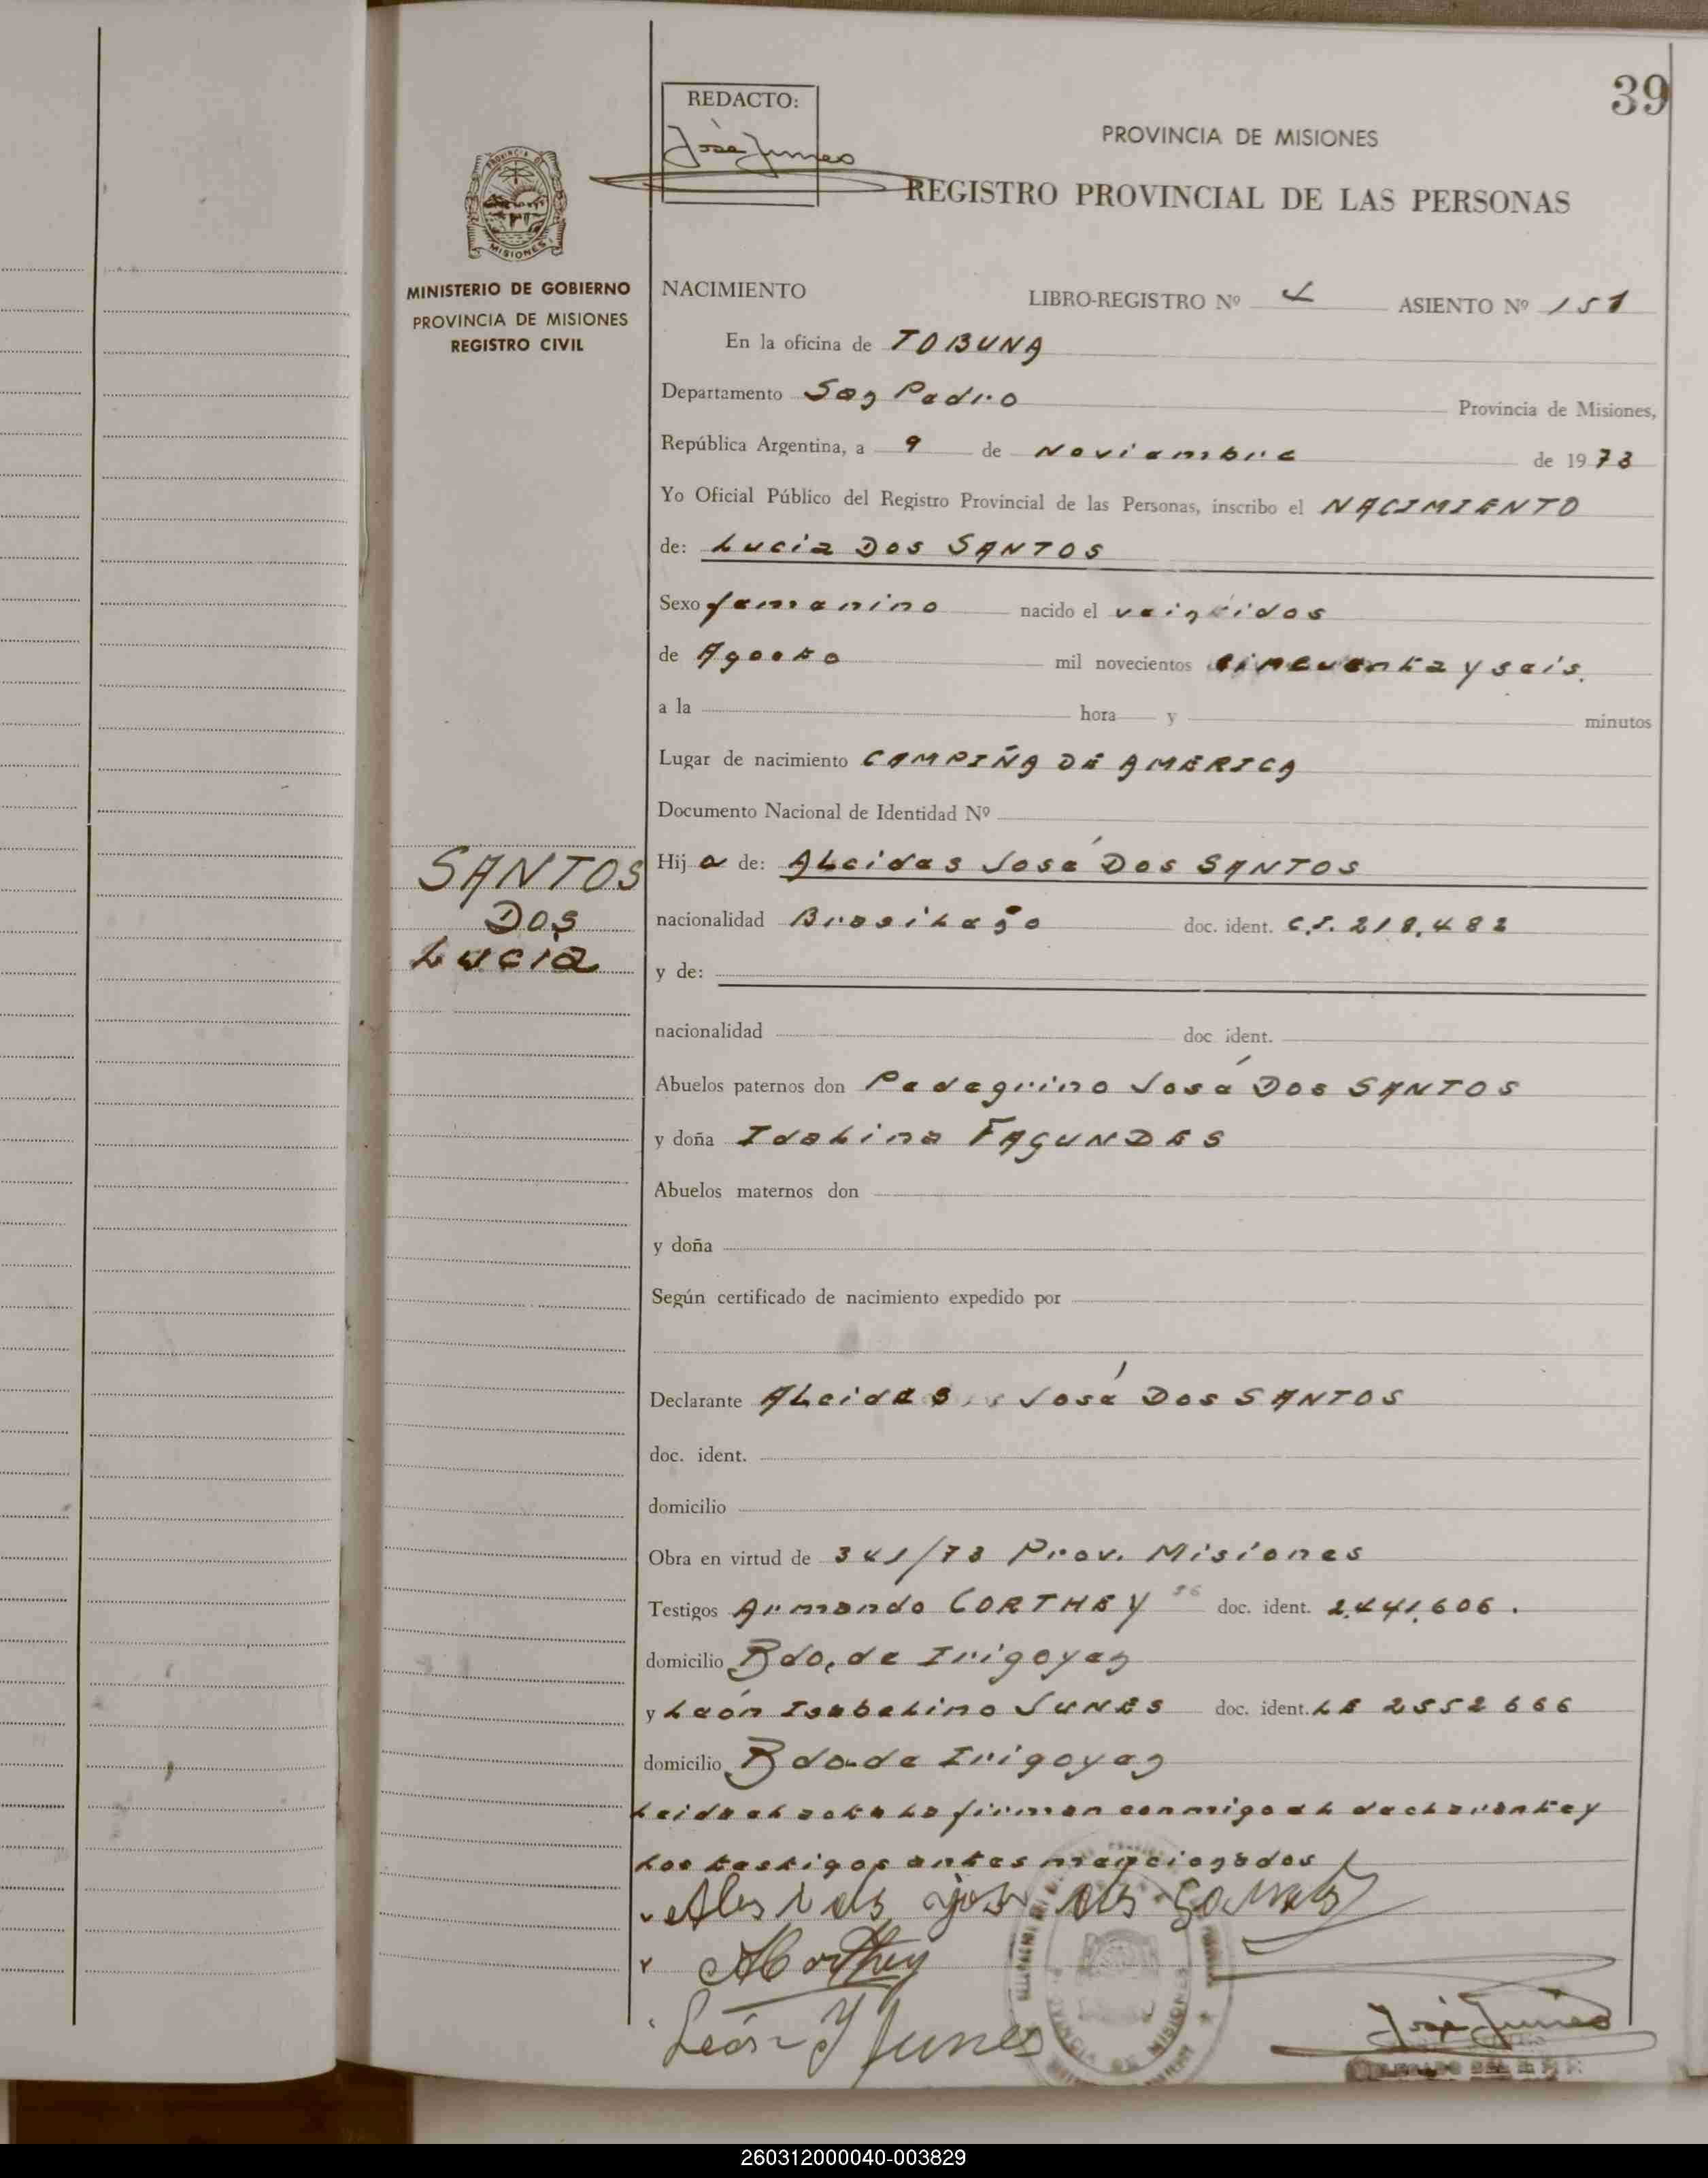 39
REDACTO:
José Junes
PROVINCIA DE MISIONES
REGISTRO PROVINCIAL DE LAS PERSONAS
MINISTERIO DE GOBIERNO
PROVINCIA DE MISIONES
REGISTRO CIVIL
NACIMIENTO LIBRO-REGISTRO Nº ASIENTO Nº 151
En la oficina de TOBUNA
Departamento San Pedro Provincia de Misiones,
República Argentina, a 9 de Noviembre de 1973
Yo Oficial Público del Registro Provincial de las Personas, inscribo el NACIMIENTO
de: Lucia DOS SANTOS
Sexo femenino nacido el veintidos
de Agosto mil novecientos cincuenta y seis.
a la hora y minutos
Lugar de nacimiento CAMPIÑA DE AMERICA
Documento Nacional de Identidad Nº
SANTOS
DOS
Lucia
Hij a de: Alcides José DOS SANTOS
nacionalidad Brasileño doc. ident. C.I. 218.482
y de:
nacionalidad doc ident.
Abuelos paternos don Pedegrino José DOS SANTOS
y doña Idalina FAGUNDES
Abuelos maternos don
y doña
Según certificado de nacimiento expedido por
Declarante Alcides José DOS SANTOS
doc. ident.
domicilio
Obra en virtud de 341/73 Prov. Misiones
Testigos Armando CORTHEY doc. ident. 2.441.606.
domicilio Bdo. de Irigoyen
y León Isabelino JUNES doc. ident. LE 2552666
domicilio Bdo. de Irigoyen
Leida el acta la firman conmigo el declarante y
los testigos antes mencionados
Alcides jose dos santos
ACorthey
León I Junes
José Junes
PROVINCIA DE MISIONES
260312000040-003829